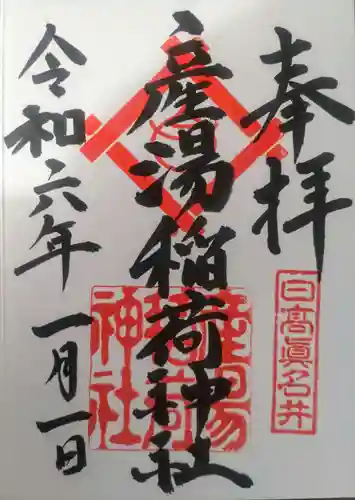 奉拝
日高真名井
産湯稲荷神社
産湯稲荷神社
令和六年 一月一日